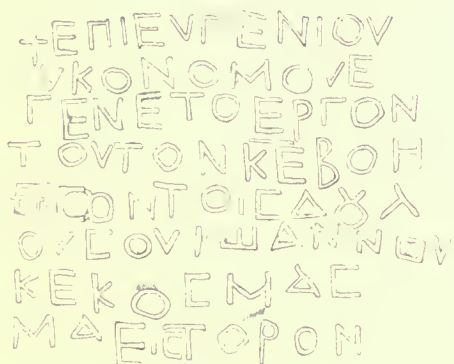 +ΕΠΙΕΥΓΕΝΙΟΥ
ΥΚΟΝΟΜΟΥΕ
ΓΕΝΕΤΟΕΡΓΟΝ
ΤΟΥΤΟΝΚΕΒΟΗ
ΤΟΙϹΔΟΥΛ
ΟΥϹϹΟΥΙѠΑΝΝΟΥ
ΚΕΚΟϹΜΑϹ
ΜΑΕϹΤΟΡΟΝ